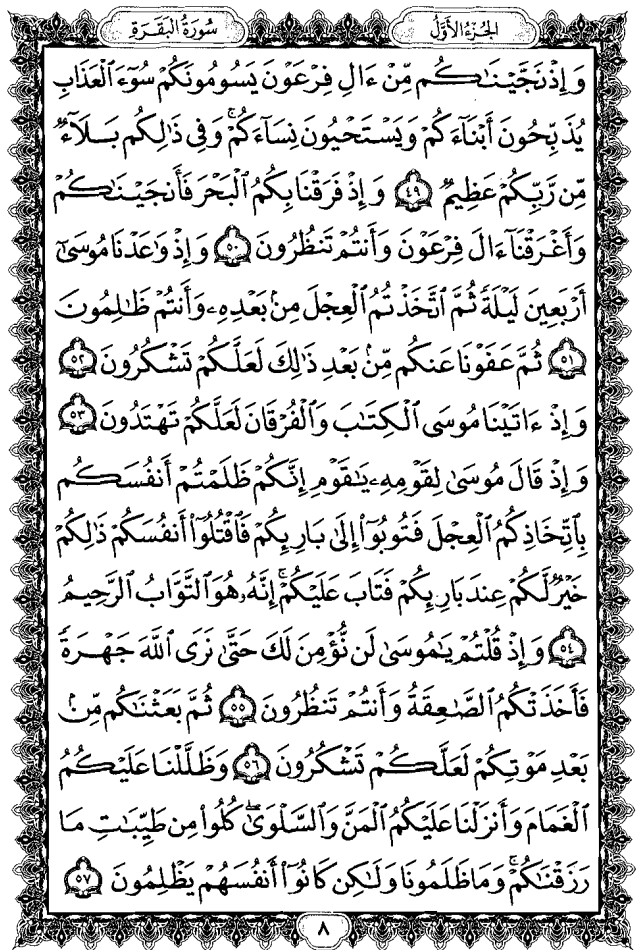 الجُزْءُ الأَوَّلُ
سُورَةُ البَقَرَةِ
وَإِذْ نَجَّيْنَـٰكُم مِّنْ ءَالِ فِرْعَوْنَ يَسُومُونَكُمْ سُوٓءَ ٱلْعَذَابِ
يُذَبِّحُونَ أَبْنَآءَكُمْ وَيَسْتَحْيُونَ نِسَآءَكُمْۚ وَفِى ذَٰلِكُم بَلَآءٌ
مِّن رَّبِّكُمْ عَظِيمٌ ٤٩ وَإِذْ فَرَقْنَا بِكُمُ ٱلْبَحْرَ فَأَنجَيْنَـٰكُمْ
وَأَغْرَقْنَآ ءَالَ فِرْعَوْنَ وَأَنتُمْ تَنظُرُونَ ٥٠ وَإِذْ وَٰعَدْنَا مُوسَىٰٓ
أَرْبَعِينَ لَيْلَةً ثُمَّ ٱتَّخَذْتُمُ ٱلْعِجْلَ مِنۢ بَعْدِهِۦ وَأَنتُمْ ظَـٰلِمُونَ
٥١ ثُمَّ عَفَوْنَا عَنكُم مِّنۢ بَعْدِ ذَٰلِكَ لَعَلَّكُمْ تَشْكُرُونَ ٥٢
وَإِذْ ءَاتَيْنَا مُوسَى ٱلْكِتَـٰبَ وَٱلْفُرْقَانَ لَعَلَّكُمْ تَهْتَدُونَ ٥٣
وَإِذْ قَالَ مُوسَىٰ لِقَوْمِهِۦ يَـٰقَوْمِ إِنَّكُمْ ظَلَمْتُمْ أَنفُسَكُم
بِٱتِّخَاذِكُمُ ٱلْعِجْلَ فَتُوبُوٓا۟ إِلَىٰ بَارِئِكُمْ فَٱقْتُلُوٓا۟ أَنفُسَكُمْ ذَٰلِكُمْ
خَيْرٌ لَّكُمْ عِندَ بَارِئِكُمْ فَتَابَ عَلَيْكُمْۚ إِنَّهُۥ هُوَ ٱلتَّوَّابُ ٱلرَّحِيمُ
٥٤ وَإِذْ قُلْتُمْ يَـٰمُوسَىٰ لَن نُّؤْمِنَ لَكَ حَتَّىٰ نَرَى ٱللَّهَ جَهْرَةً
فَأَخَذَتْكُمُ ٱلصَّـٰعِقَةُ وَأَنتُمْ تَنظُرُونَ ٥٥ ثُمَّ بَعَثْنَـٰكُم مِّنۢ
بَعْدِ مَوْتِكُمْ لَعَلَّكُمْ تَشْكُرُونَ ٥٦ وَظَلَّلْنَا عَلَيْكُمُ
ٱلْغَمَامَ وَأَنزَلْنَا عَلَيْكُمُ ٱلْمَنَّ وَٱلسَّلْوَىٰۖ كُلُوا۟ مِن طَيِّبَـٰتِ مَا
رَزَقْنَـٰكُمْۚ وَمَا ظَلَمُونَا وَلَـٰكِن كَانُوٓا۟ أَنفُسَهُمْ يَظْلِمُونَ ٥٧
٨